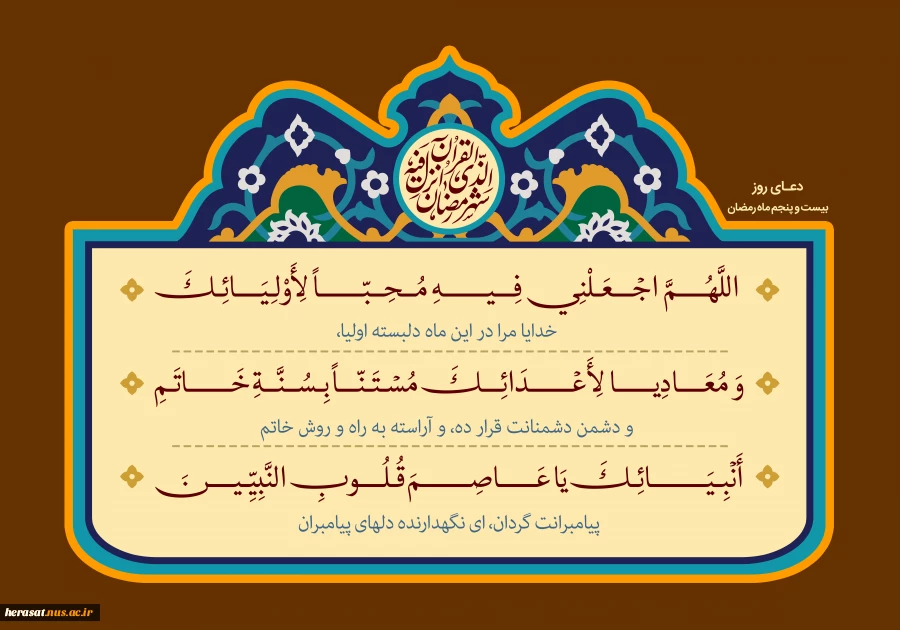 شهر رمضان
الذی انزل فیه
القرآن
دعـای روز
بیست و پنجم ماه رمضان
اللَّهُمَّ اجْعَلْنِي فِيهِ مُحِبّاً لِأَوْلِيَائِكَ
خدایا مرا در این ماه دلبسته اولیا،
وَ مُعَادِيا لِأَعْدَائِكَ مُسْتَنّاً بِسُنَّةِ خَاتَمِ
و دشمن دشمنانت قرار ده، و آراسته به راه و روش خاتم
أَنْبِيَائِكَ يَا عَاصِمَ قُلُوبِ النَّبِيِّينَ
پیامبرانت گردان، ای نگهدارنده دلهای پیامبران
herasat.nus.ac.ir